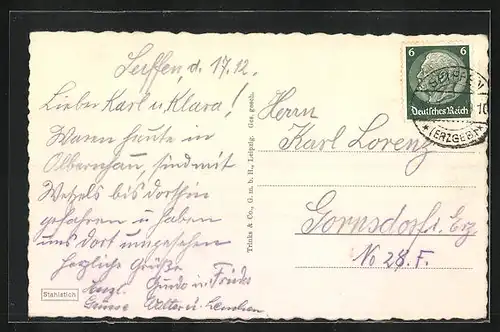 Seiffen, d. 17.12.
Lieber Karl u. Klara!
Waren heute in
Olbernhau, sind mit
Wetzels bis dorthin
gefahren u. haben
uns dort umgesehen
Herzliche Grüße
Herzl. in Frieda
Grüsse Walter u.
Stahlstich
Trinks & Co., G. m. b. H., Leipzig. Ges. gesch.
Herrn
Karl Lorenz
Gornsdorf i. Erz.
No 28. F.
6 6
Deutsches Reich
SEIFFEN
(ERZGEB)